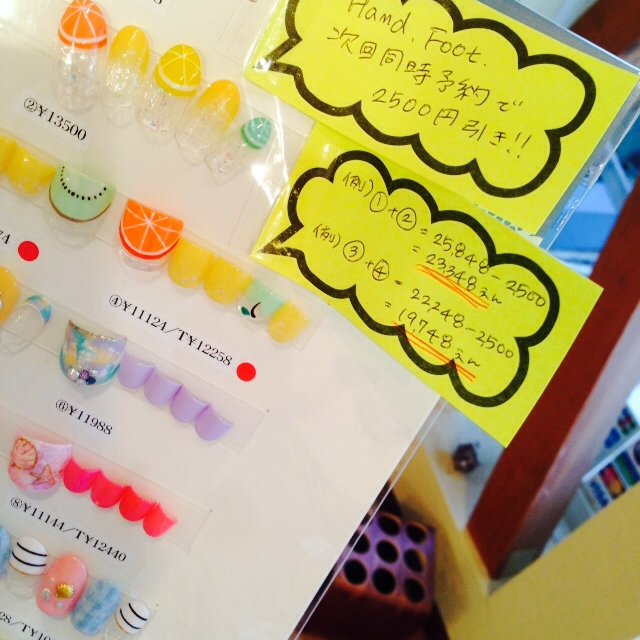 Hand. Foot.
次回同時予約で
2500円引き!!
②¥13500
例)①+②=25.848-2500
=23.348えん
例)③+④=22248-2500
=19.748えん
④¥11124/TY12258
⑥¥11988
⑧¥11144/TY12440